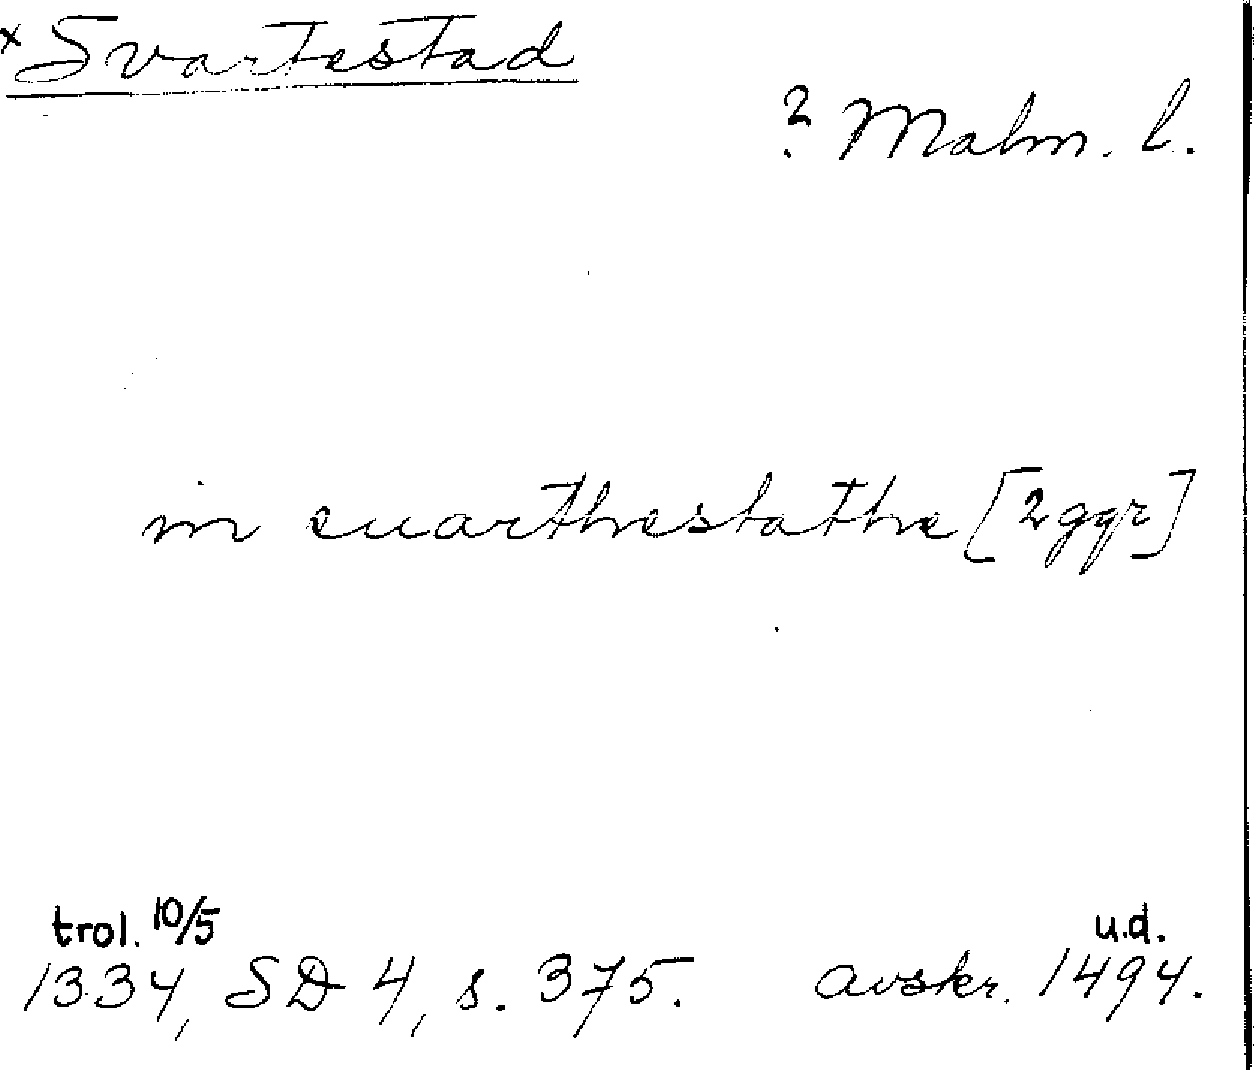 x Svartestad
? Malm. l.
in euarthestathe [2 ggr]
trol. 10/5
u.d.
1334, SD 4, s. 375. avskr. 1494.